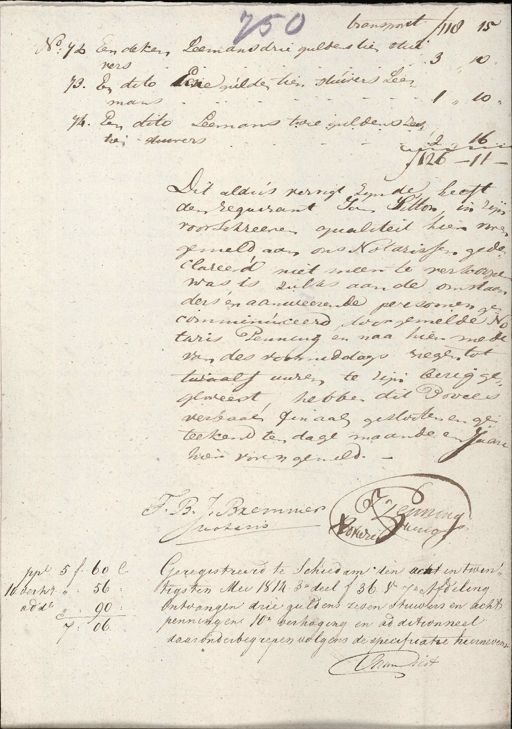 750
transport f 118 15
No. 72 Een deken Leemans drie guldens tien stui
vers 3 „ 10 „
73. En dito Eene gulden tien stuivers Lee
mans 1 „ 10 „
74. Een dito Leemans twee guldens zes
tien stuivers 2 „ 16
f 126 – 11 –
Dit aldus verrigt zijnde heeft
den requirant Jan in zijn
voorschreeven qualiteit hier voren
gemeld aan ons Notarissen gede
clareerd niet meer te verkoopen
was is zulks aan de omstaan
ders en aanweesende persoonen ge
communiceerd door gemelde No
taris Penning en naa hier mede
van des voormiddags negen tot
twaalf uuren te zijn bezig ge
weest, hebben dit Proces
verbaal finaal gesloten en ge
teekend ten dage maande en Jaare
hier voren gemeld. –
F. B. J. Bremmer
Notaris
Penning
Notaris
ppl 5 f. 60 C
10 verh. „ 56
addl 90
7. 06
Geregistreerd te Schiedam den acht en twin
tigsten Mei 1814 3e deel f. 36 Afdeling
ontvangen drie guldens zeven stuivers en acht
penningen 10n verhoging en additionneel
daaronder begrepen volgens de specificatie hiernevens